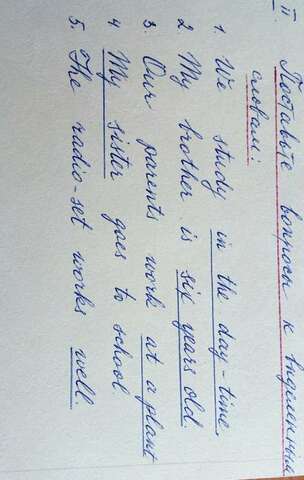 II. Поставьте вопросы к выделенным
словам:
1. We study in the day-time.
2. My brother is six years old.
3. Our parents work at a plant
4 My sister goes to school.
5. The radio-set works well.